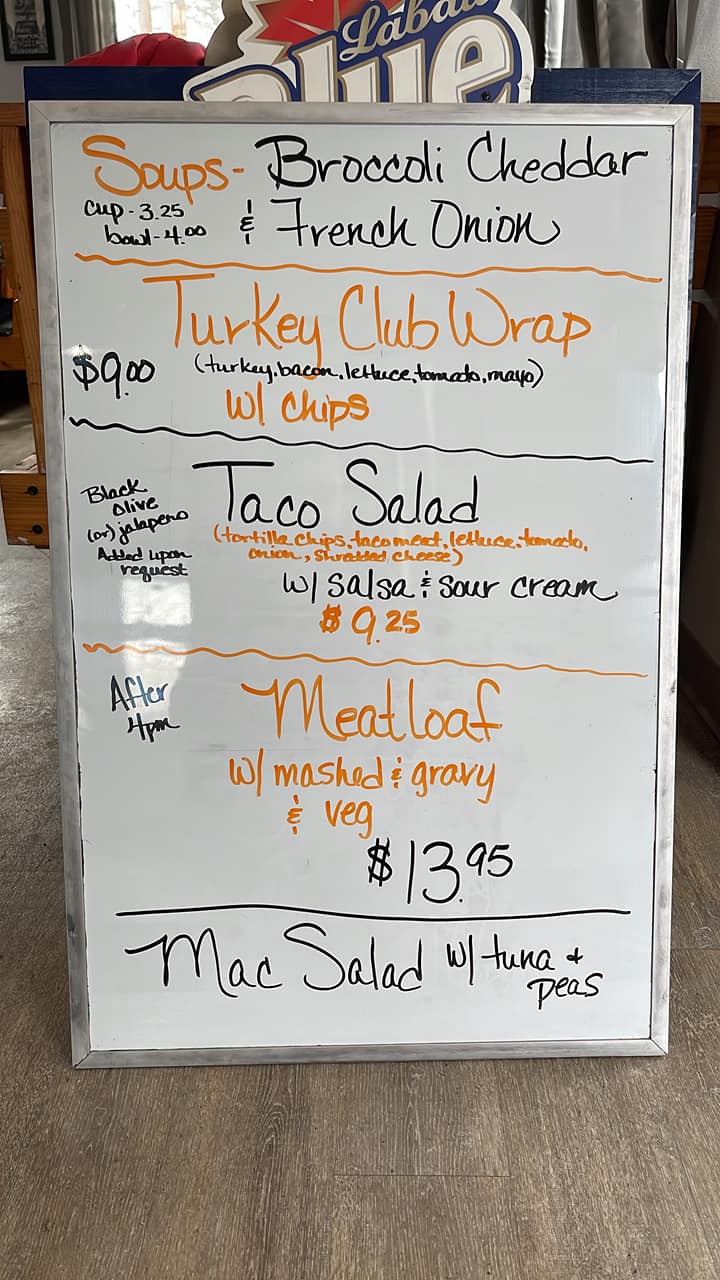 Labatt
Blue
Soups- Broccoli Cheddar
cup - 3.25
bowl - 4.00
& French Onion
Turkey Club Wrap
$9.00
(turkey, bacon, lettuce, tomato, mayo)
w/ chips
Black
olive
(or) jalapeno
Added upon
request
Taco Salad
(tortilla chips, taco meat, lettuce, tomato,
onion, shredded cheese)
w/ salsa & sour cream
$9.25
After
4pm
Meatloaf
w/ mashed & gravy
& veg
$13.95
Mac Salad w/ tuna +
peas